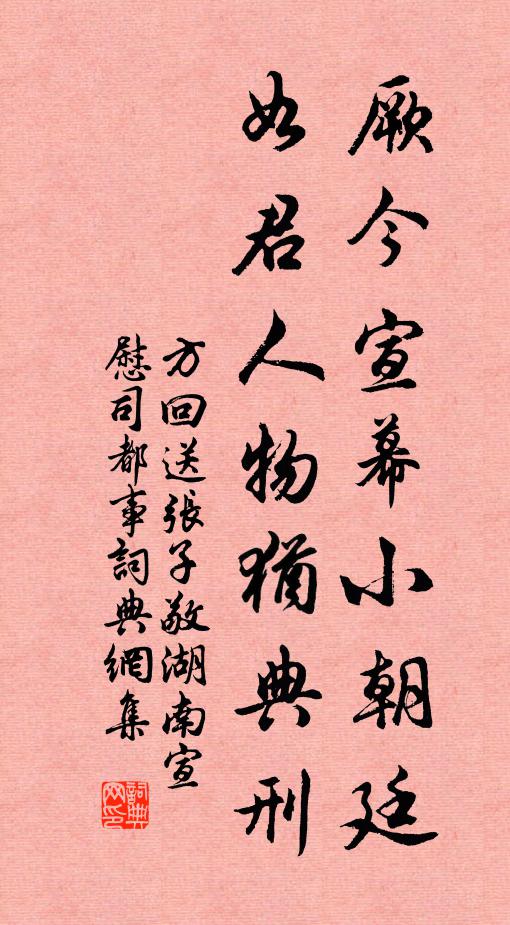 厥今宣幕小朝廷
如君人物猶典刑
方回送張子敬湖南宣
慰司都事詞典網集
詞典
网印